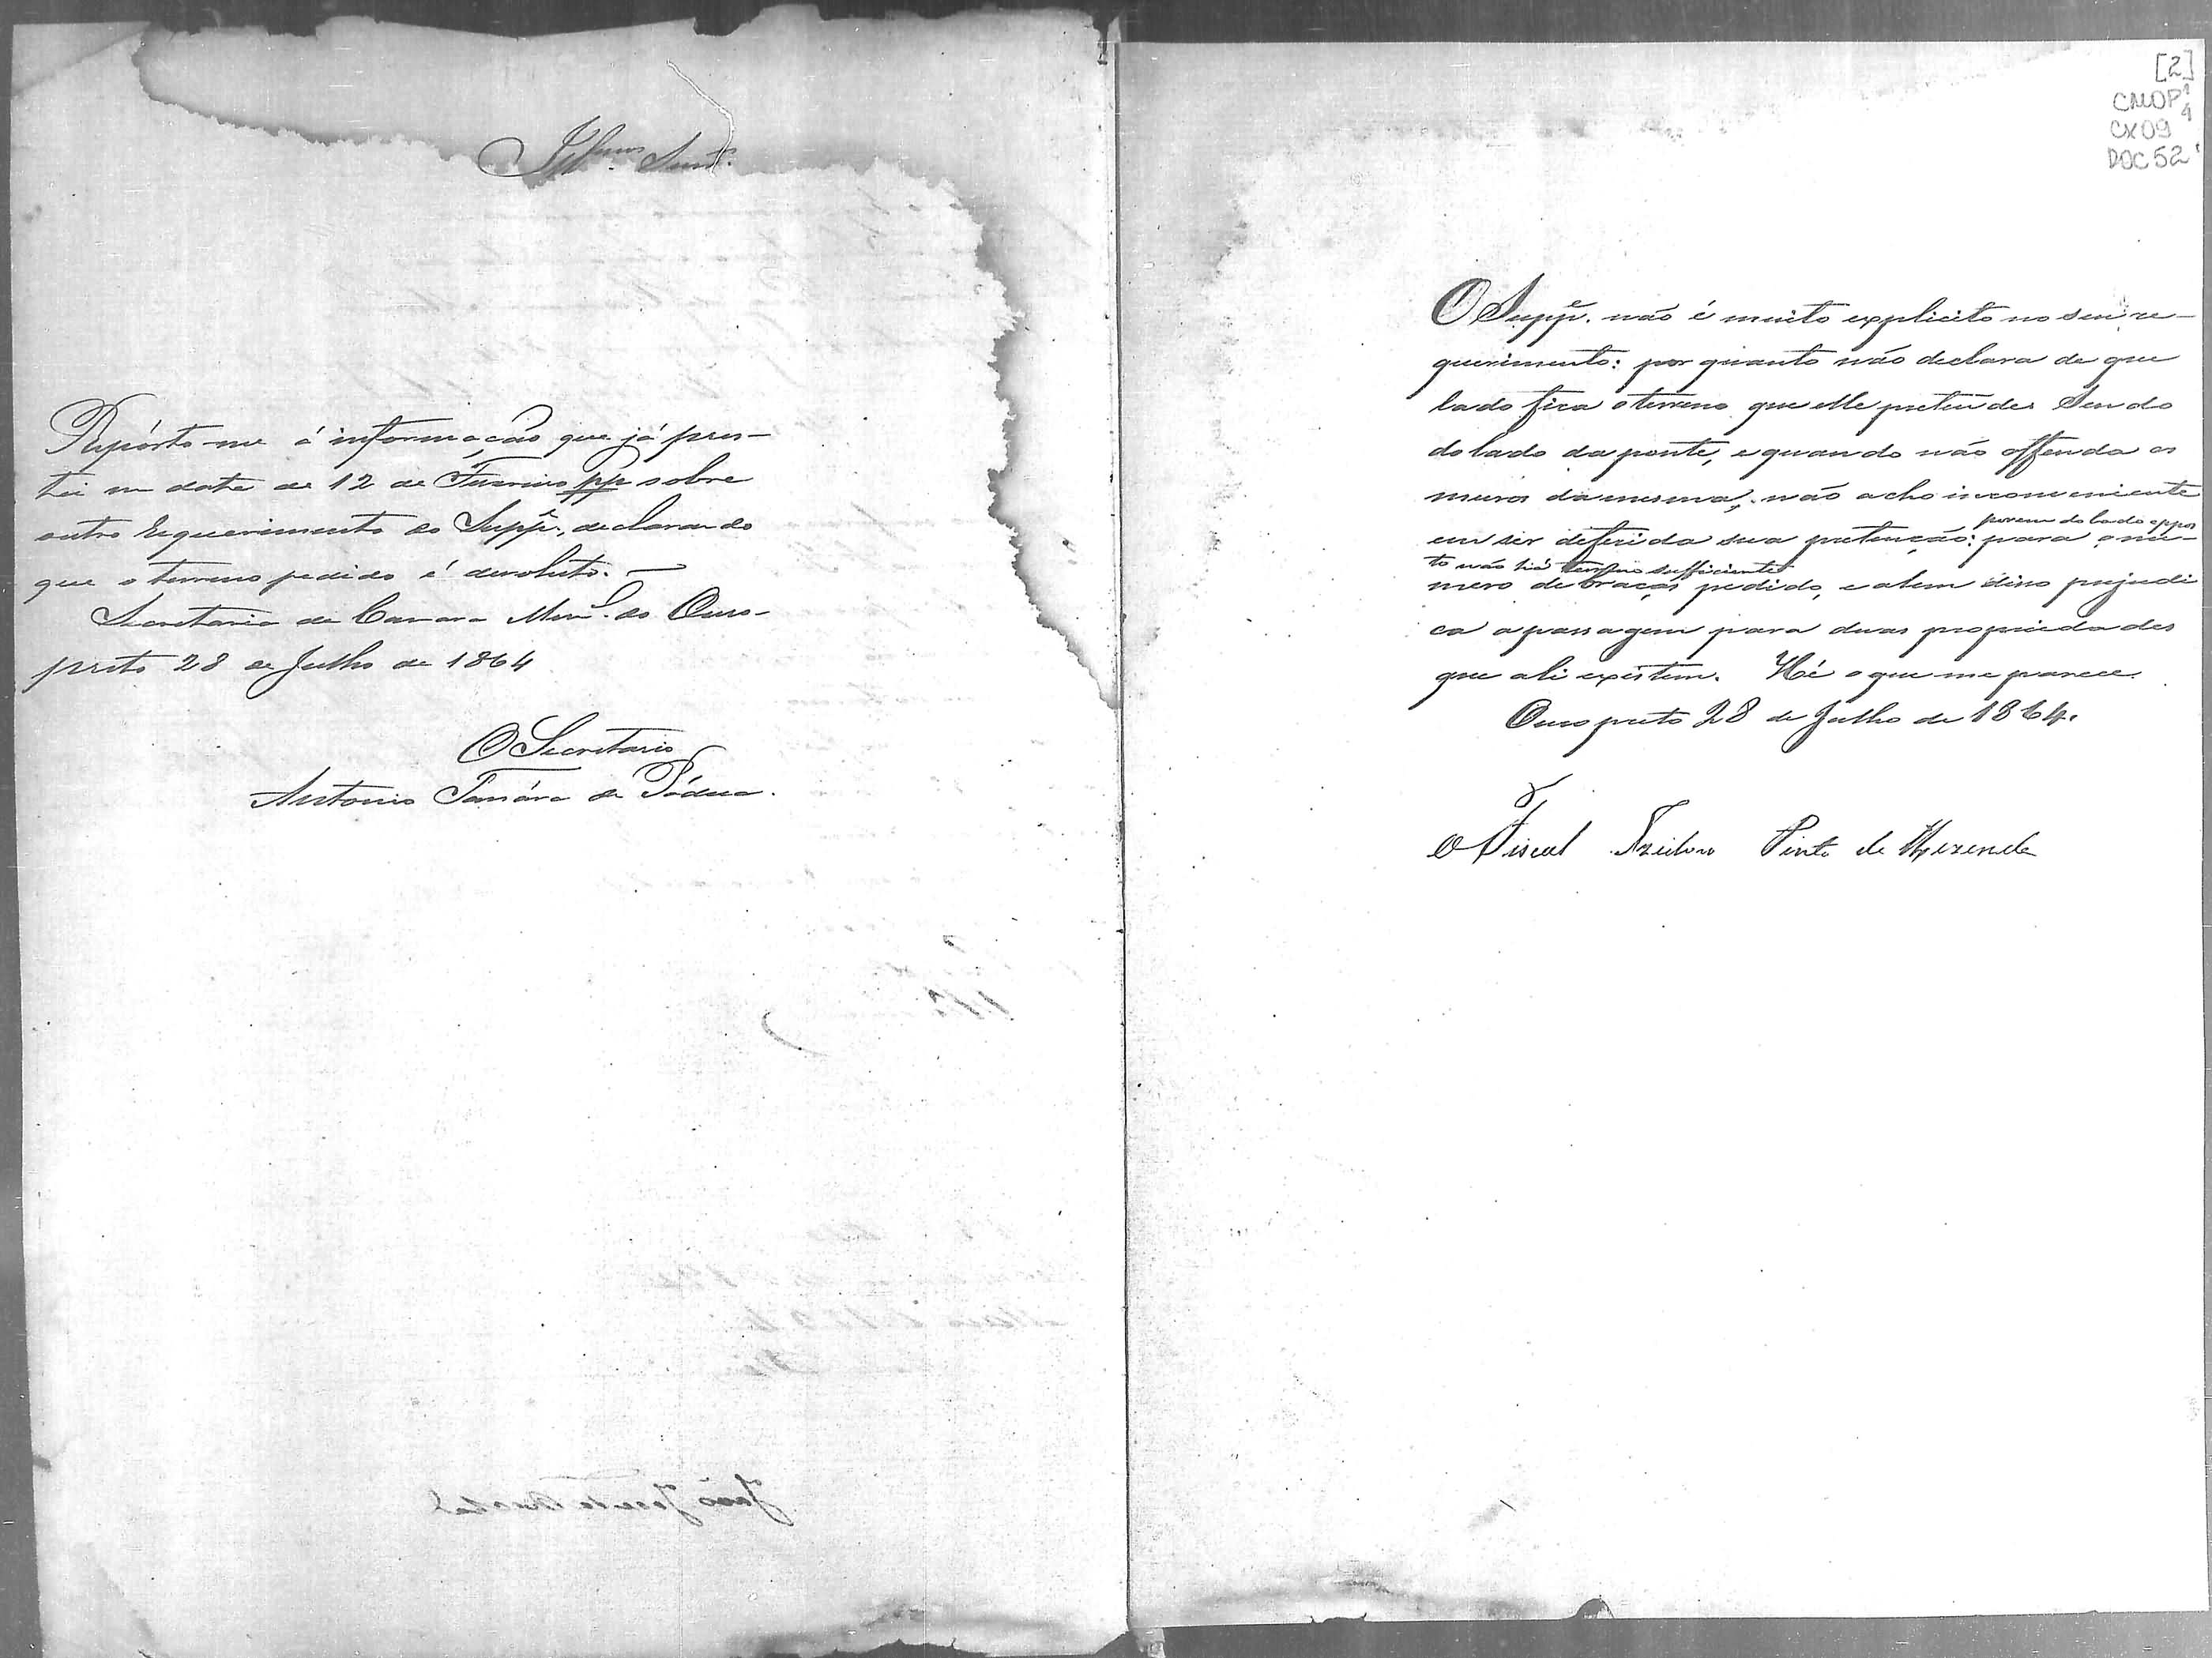 Ill.mos Snr.s
Repórto-me á informação que já pres-
tei em data de 12 de Fevereiro pp sobre
outro requerimento do Supp.e, declarando
que o terreno pedido é devoluto. —
Secretaria da Camara Mun.l do Ouro-
preto 28 de Julho de 1864
O Secretario
Antonio de Pádua.
[2]
CMOP
CX09
DOC 52
O Supp.e não é muito explicito no seu re-
querimento: por quanto não declara de que
lado fica o terreno que elle pretende: Sendo
do lado da ponte, e quando não offenda os
muros da mesma, não acho inconveniente
porem do lado oppos
em ser deferida sua pretenção: para o nu-
to não há terreno sufficiente
mero de braças pedido, e alem disso prejudi
ca a passagem para duas propriedades
que ali existem. Hé o que me parece.
Ouro preto 28 de Julho de 1864.
O Fiscal Izidoro Pinto de Rezende